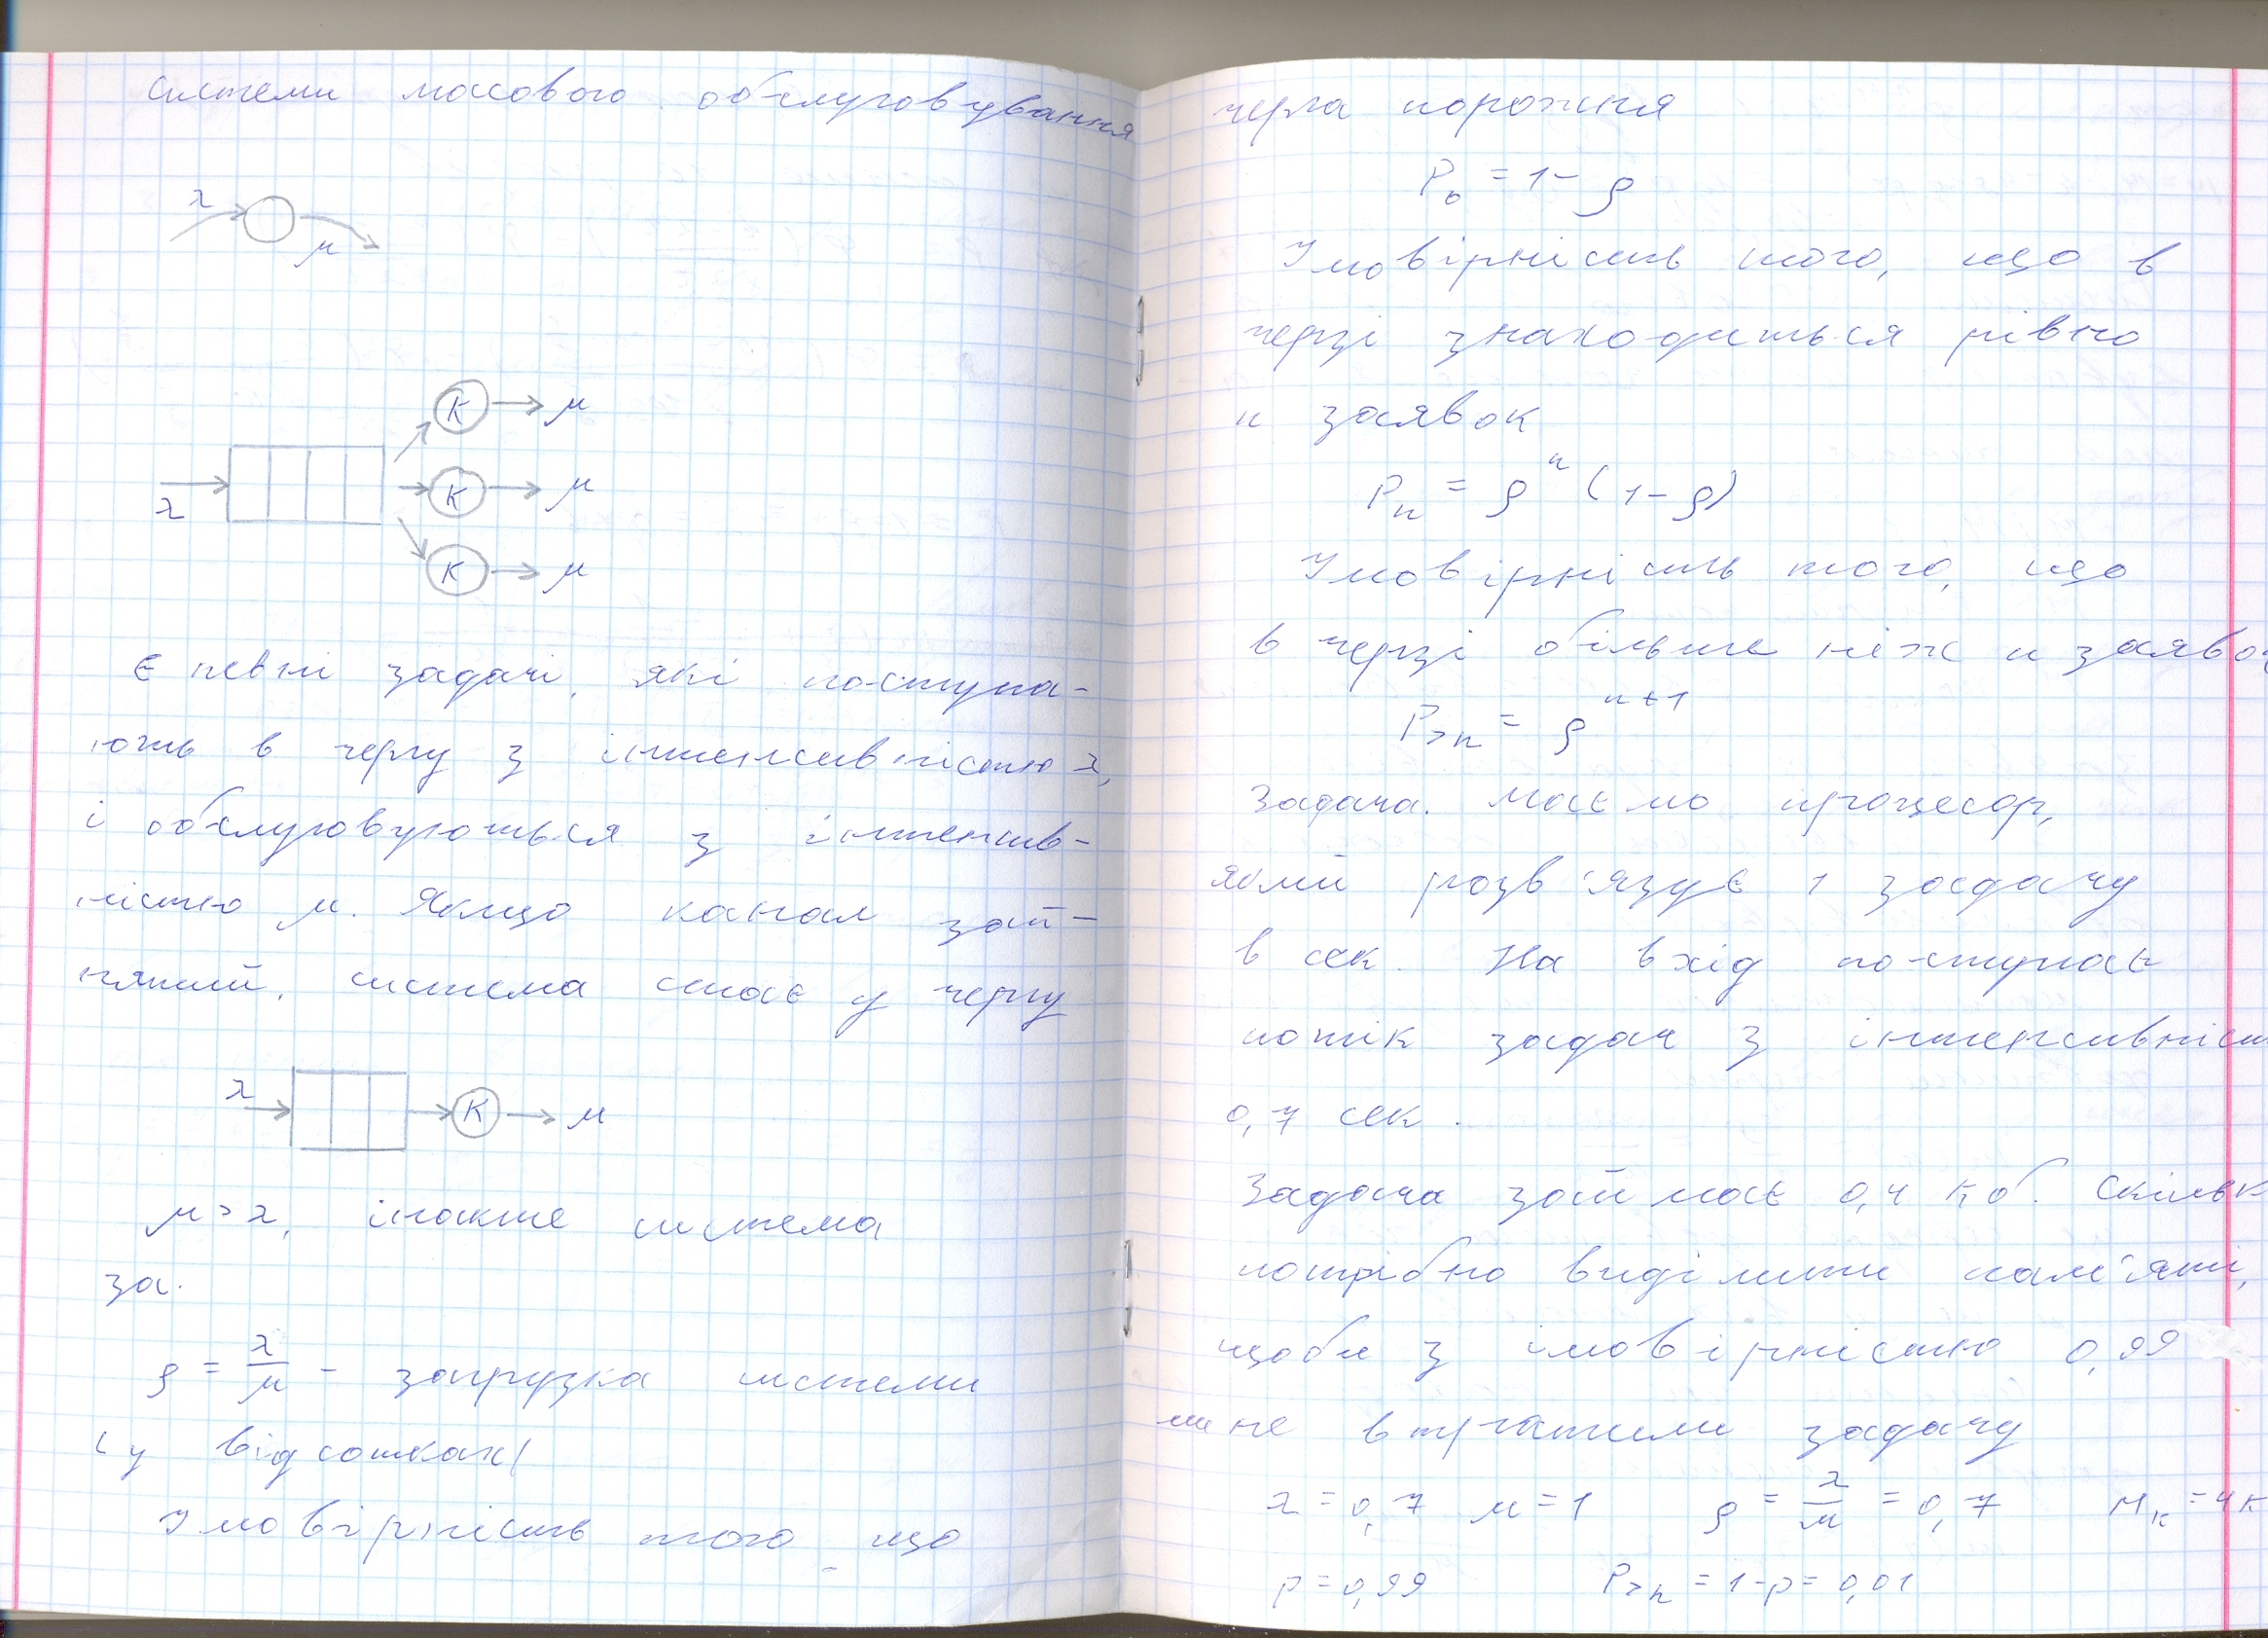 Системи масового обслуговування
λ
μ
К → μ
К → μ
λ
К → μ
Є певні задачі, які поступа-
ють в чергу з інтенсивністю λ,
і обслуговуються з інтенсив-
ністю μ. Якщо канал зай-
нятий, система стає у чергу
λ
К → μ
μ > λ, інакше система
за.
ρ = λ/μ - загрузка системи
(у відсотках)
Імовірність того що
черга порожня
P₀ = 1 - ρ
Імовірність того, що в
черзі знаходиться рівно
n заявок
Pₙ = ρⁿ (1 - ρ)
Імовірність того, що
в черзі більше ніж n заявок
P>ₙ = ρⁿ⁺¹
Задача. Маємо процесор,
який розв'язує 1 задачу
в сек. На вхід поступає
потік задач з інтенсивніст
0,7 сек.
Задача займає 0,4 Кб. Скільк
потрібно виділити пам'яті,
щоби з імовірністю 0,99
ми не втратили задачу
λ = 0,7 μ = 1 ρ = λ/μ = 0,7 Mₖ = 4К
p = 0,99 P>ₙ = 1 - p = 0,01